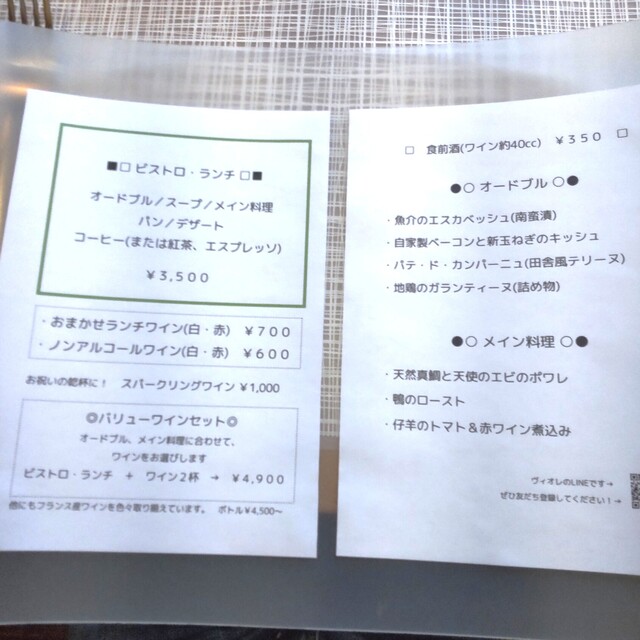 ■□ ビストロ・ランチ □■
オードブル／スープ／メイン料理
パン／デザート
コーヒー(または紅茶、エスプレッソ)
￥3,500
・おまかせランチワイン(白・赤) ￥700
・ノンアルコールワイン(白・赤) ￥600
お祝いの乾杯に！ スパークリングワイン ￥1,000
◎バリューワインセット◎
オードブル、メイン料理に合わせて、
ワインをお選びします
ビストロ・ランチ ＋ ワイン2杯 → ￥4,900
他にもフランス産ワインを色々取り揃えています。 ボトル￥4,500～
□ 食前酒(ワイン約40cc) ￥350 □
●○ オードブル ○●
・魚介のエスカベッシュ(南蛮漬)
・自家製ベーコンと新玉ねぎのキッシュ
・パテ・ド・カンパーニュ(田舎風テリーヌ)
・地鶏のガランティーヌ(詰め物)
●○ メイン料理 ○●
・天然真鯛と天使のエビのポワレ
・鴨のロースト
・仔羊のトマト＆赤ワイン煮込み
ヴィオレのLINEです→
ぜひ友だち登録してください！→